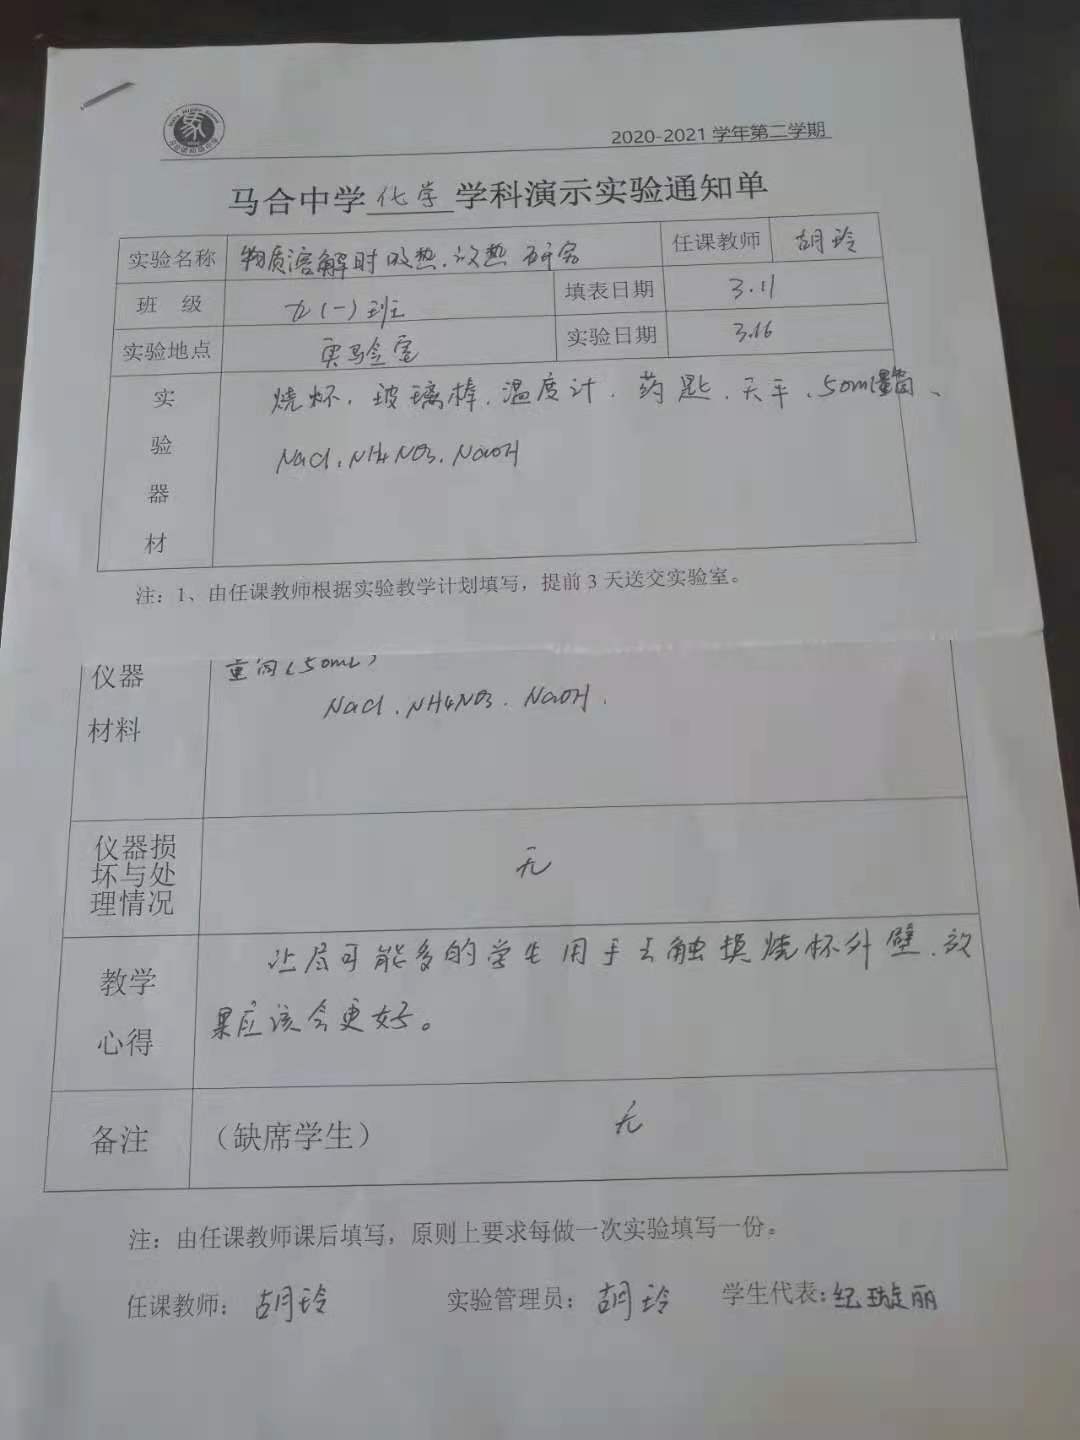 2020-2021 学年第二学期
马合中学 化学 学科演示实验通知单
实验名称 物质溶解时吸热、放热研究 任课教师 胡玲
班 级 九(一)班 填表日期 3.11
实验地点 实验室 实验日期 3.16
实验器材 烧杯、玻璃棒、温度计、药匙、天平、50ml量筒、
NaCl、NH4NO3、NaOH
注：1、由任课教师根据实验教学计划填写，提前 3 天送交实验室。
仪器 (50mL)
材料 NaCl、NH4NO3、NaOH.
仪器损
坏与处 无
理情况
教学 让尽可能多的学生用手去触摸烧杯外壁、效
心得 果应该会更好。
备注 （缺席学生） 无
注：由任课教师课后填写，原则上要求每做一次实验填写一份。
任课教师：胡玲 实验管理员：胡玲 学生代表：纪璇丽